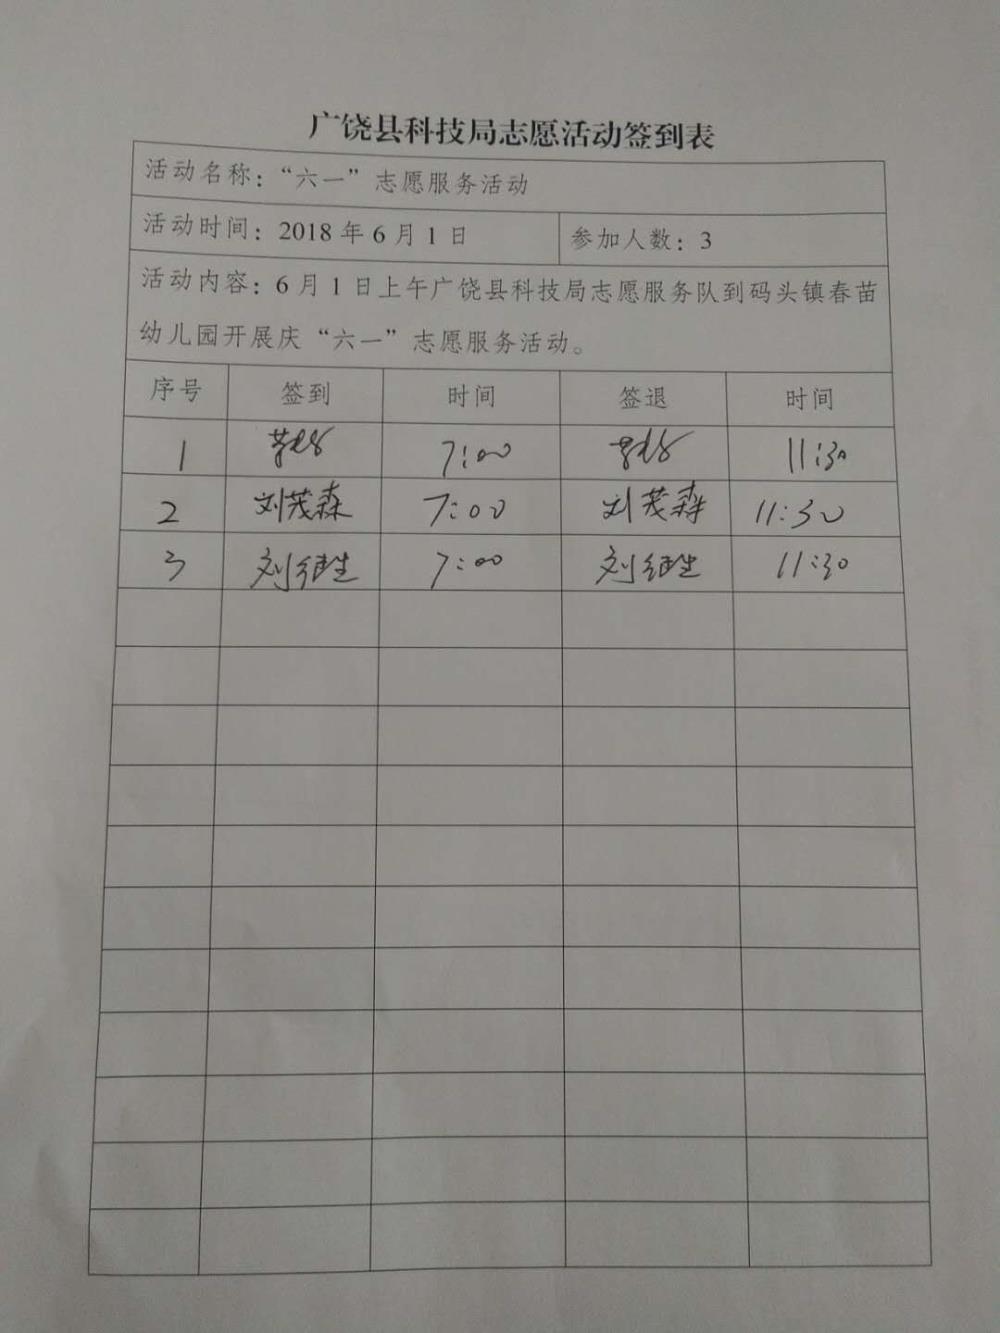 广饶县科技局志愿活动签到表
活动名称：“六一”志愿服务活动
活动时间：2018年6月1日 参加人数：3
活动内容：6月1日上午广饶县科技局志愿服务队到码头镇春苗
幼儿园开展庆“六一”志愿服务活动。
序号 签到 时间 签退 时间
1 7:00 11:30
2 刘茂森 7:00 刘茂森 11:30
3 7:00 11:30